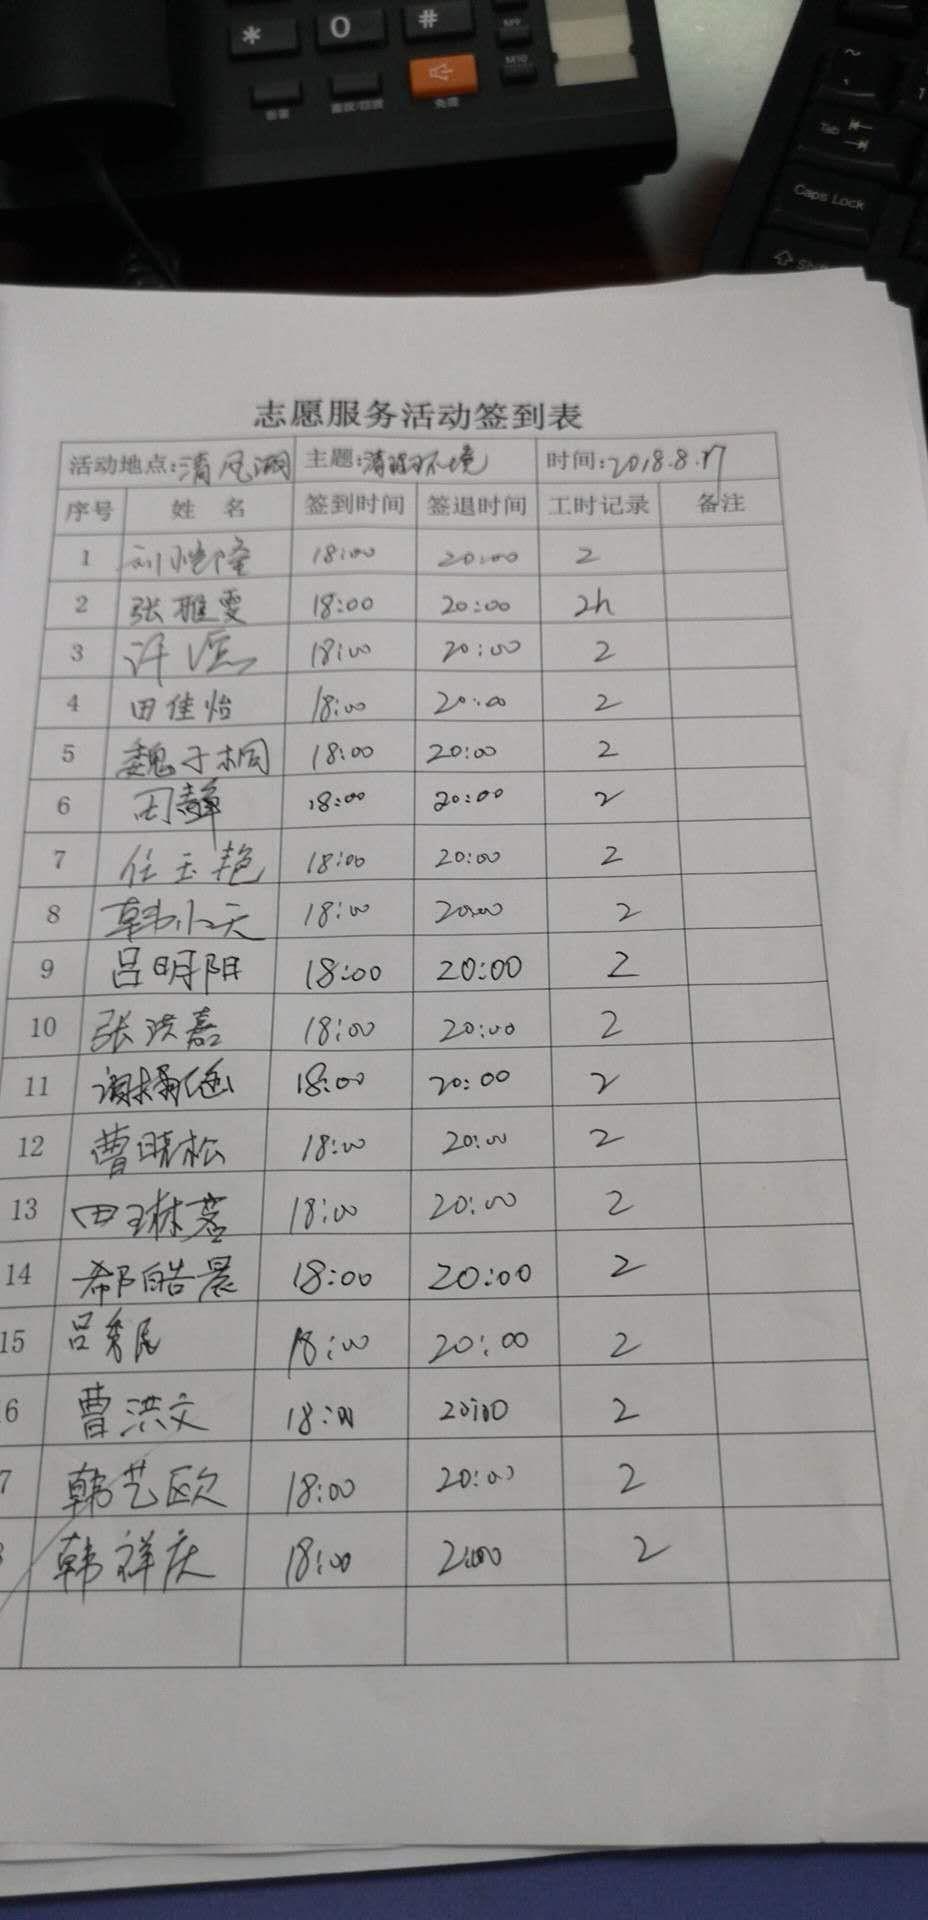 * 0 #
M9
M10
免提
~
Tab
Caps Lock
志愿服务活动签到表
活动地点:清风湖 主题:清理环境 时间:2018.8.17
序号 姓 名 签到时间 签退时间 工时记录 备注
1 刘恺隆 18:00 20:00 2
2 张雅雯 18:00 20:00 2h
3 许 18:00 20:00 2
4 田佳怡 18:00 20:00 2
5 魏子桐 18:00 20:00 2
6 田静 18:00 20:00 2
7 任玉艳 18:00 20:00 2
8 韩小天 18:00 20:00 2
9 吕明阳 18:00 20:00 2
10 张洪嘉 18:00 20:00 2
11 18:00 20:00 2
12 曹晓松 18:00 20:00 2
13 田琳茗 18:00 20:00 2
14 郗皓晨 18:00 20:00 2
15 吕秀民 18:00 20:00 2
6 曹洪文 18:00 20:00 2
7 韩艺欧 18:00 20:00 2
韩祥庆 18:00 20:00 2